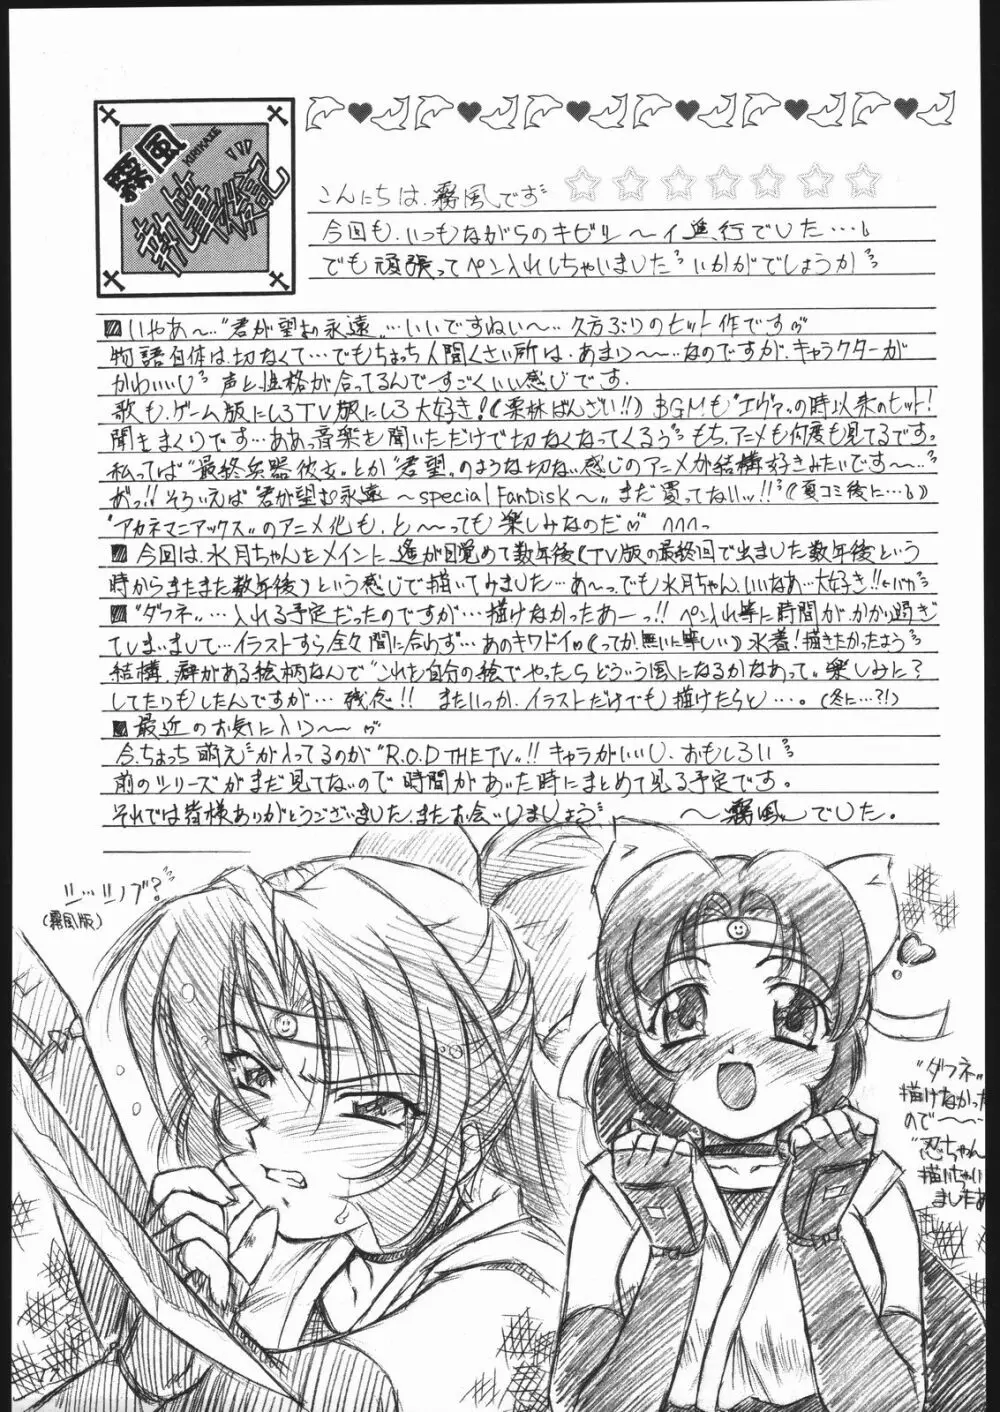 霧風
KIRIKAZE
執筆後記
こんにちは、霧風です
今回も、いつもながらのキビシ〜イ進行でした…
でも頑張ってペン入れしちゃいました いかがでしょうか
いやあ〜…"君が望む永遠"…いいですねい〜…久方ぶりのヒット作です
物語自体は、切なくて…でもちょっち人間くさい所は、あまり〜…なのですが、キャラクターが
かわいいし 声と性格が合ってるんですごくいい感じです。
歌も、ゲーム版にしろTV版にしろ大好き!(栗林ばんざい!!) BGMも"エヴァ"の時以来のヒット!
聞きまくりです…ああ、音楽を聞いただけで切なくなってくるぅ もち、アニメも何度も見てるです。
私ってば"最終兵器彼女"とか"君望"のような切ない感じのアニメが結構好きみたいです〜…
がっ!! そういえば"君が望む永遠 〜special FanDisk〜"まだ買ってないッ!!(夏コミ後に…)
"アカネマニアックス"のアニメ化も、と〜っても楽しみなのだ
今回は、水月ちゃんをメインに、遙が目覚めて数年後(TV版の最終回で出ました数年後という
時からまたまた数年後)という感じで描いてみました…あ〜っでも水月ちゃん、いいなあ…大好き!!←バカ
"ダフネ"…入れる予定だったのですが…描けなかったあーっ!! ペン入れ等に時間が、かかり過ぎ
てしまいまして…イラストすら全々間に合わず…あのキワドイの(ってか無いに等しい)水着!描きたかったよう
結構、癖がある絵柄なんで"これを自分の絵でやったらどういう風になるかなあって"楽しみに?
してたりもしたんですが… 残念!! またいつか、イラストだけでも描けたらと…。(冬に…?!)
最近のお気に入り〜
今、ちょっち"萌え"が入ってるのが"R.O.D THE TV"!! キャラがいいし、おもしろい
前のシリーズがまだ見てないので時間があいた時にまとめて見る予定です。
それでは皆様ありがとうございました、またお会いしましょう 〜霧風〜でした。
シ…シノブ?
(霧風版)
"ダフネ"
描けなかった
ので〜…
"忍ちゃん"
描いちゃい
ましたぁ